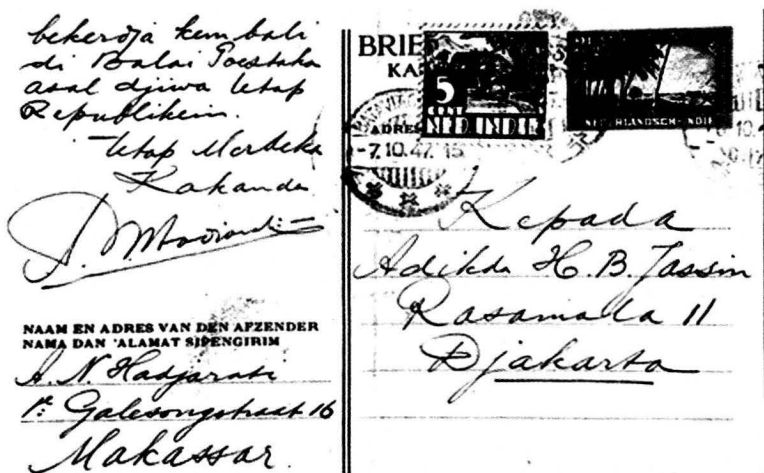 bekerdja kembali
di Balai Poestaka
asal djiwa tetap
Republikein.
Tetap Merdeka
Kakanda
NAAM EN ADRES VAN DEN AFZENDER
NAMA DAN 'ALAMAT SIPENGIRIM
A. N. Hadjarati
1e Galesongstraat 16
Makassar.
BRIEF
KA
5
CENT
NED. INDIE
NEDERLANDSCH-INDIE
ADRES
-7.10.47. 15
Kepada
Adikda H. B. Jassin
Rasamala 11
Djakarta